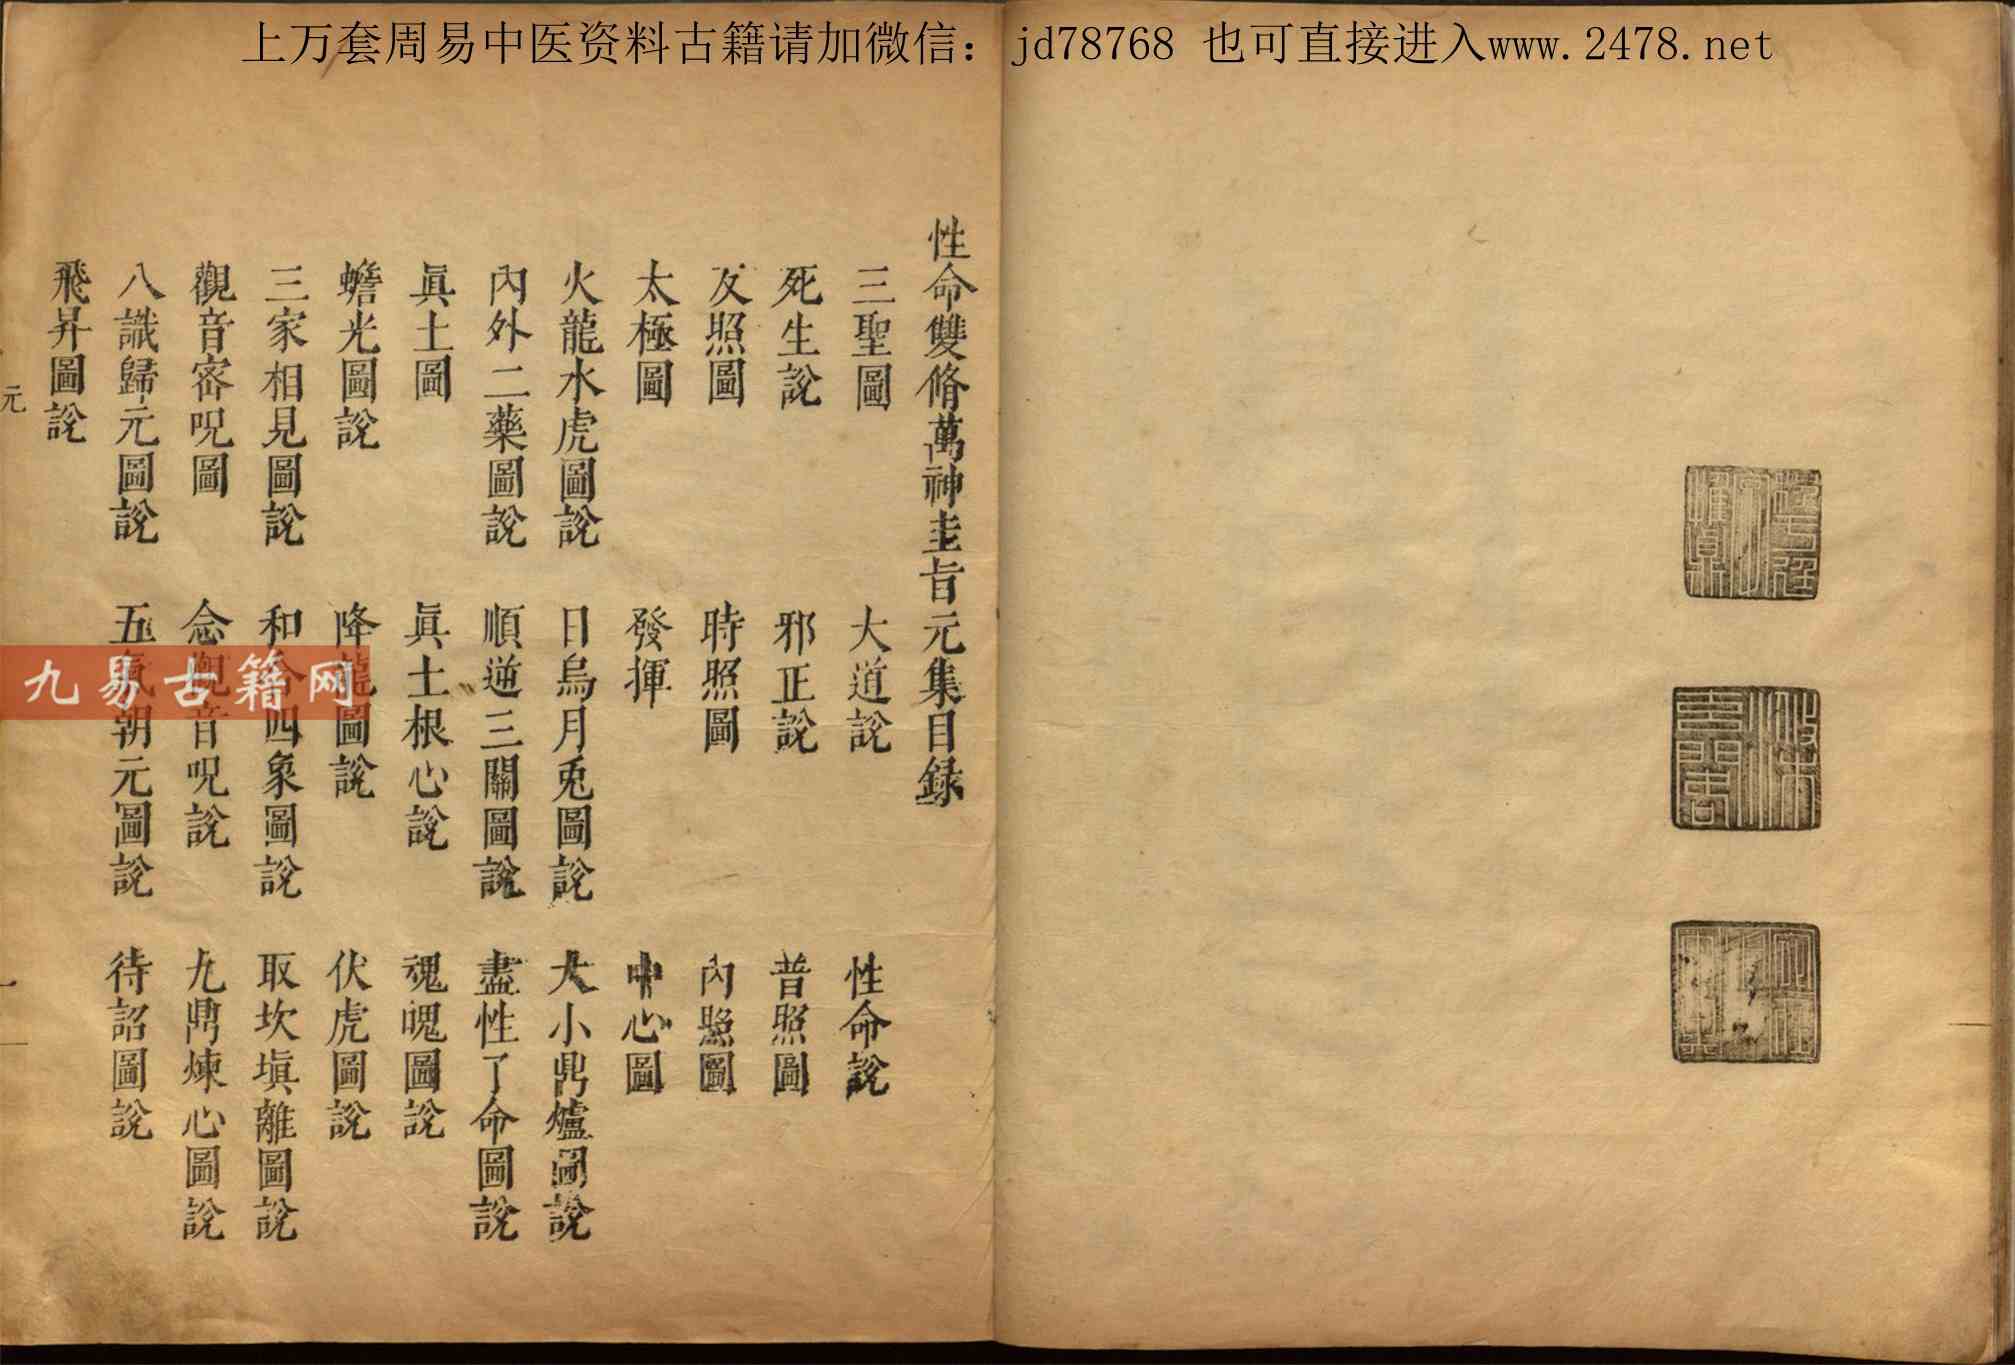 上万套周易中医资料古籍请加微信：jd78768 也可直接进入www.2478.net
性命雙脩萬神圭旨元集目録
三聖圖 大道説 性命説
死生説 邪正説 普照圖
反照圖 時照圖 内照圖
太極圖 發揮 中心圖
火龍水虎圖説 日烏月兎圖説 大小鼎爐圖説
内外二藥圖説 順逆三關圖説 盡性了命圖説
眞土圖 眞土根心説 魂魄圖説
蟾光圖説 降龍圖説 伏虎圖説
三家相見圖説 和合四象圖説 取坎塡離圖説
觀音密呪圖 念觀音呪説 九鼎煉心圖説
八識歸元圖説 五氣朝元圖説 待詔圖説
飛昇圖説
元
一
九易古籍网